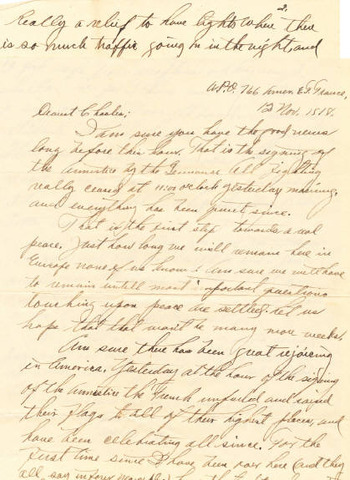 2,
really a relief to have lights where there
is so much traffic going on in the night, and
A.P.O. 766 Amer. E.F. France,
12 Nov. 1918.
Dearest Charles;
I am sure you have the good news
long before this hour. That is the signing of
the armistice by the Germans. All fighting
really ceased at 11:00 o'clock yesterday morning,
and everything has been quiet since.
That is the first step towards a real
peace. Just how long we will remain here in
Europe none of us know. I am sure we will have
to remain untill most important questions
touching upon peace are settled. Let us
hope that that won't be many more weeks.
Am sure there has been great rejoicing
in America. Yesterday at the hour of the signing
of the Armistice the French unfurled and raised
their flags to all of their highest places, and
have been celebrating all since. For the
first time since I have been over here and they
all say in four